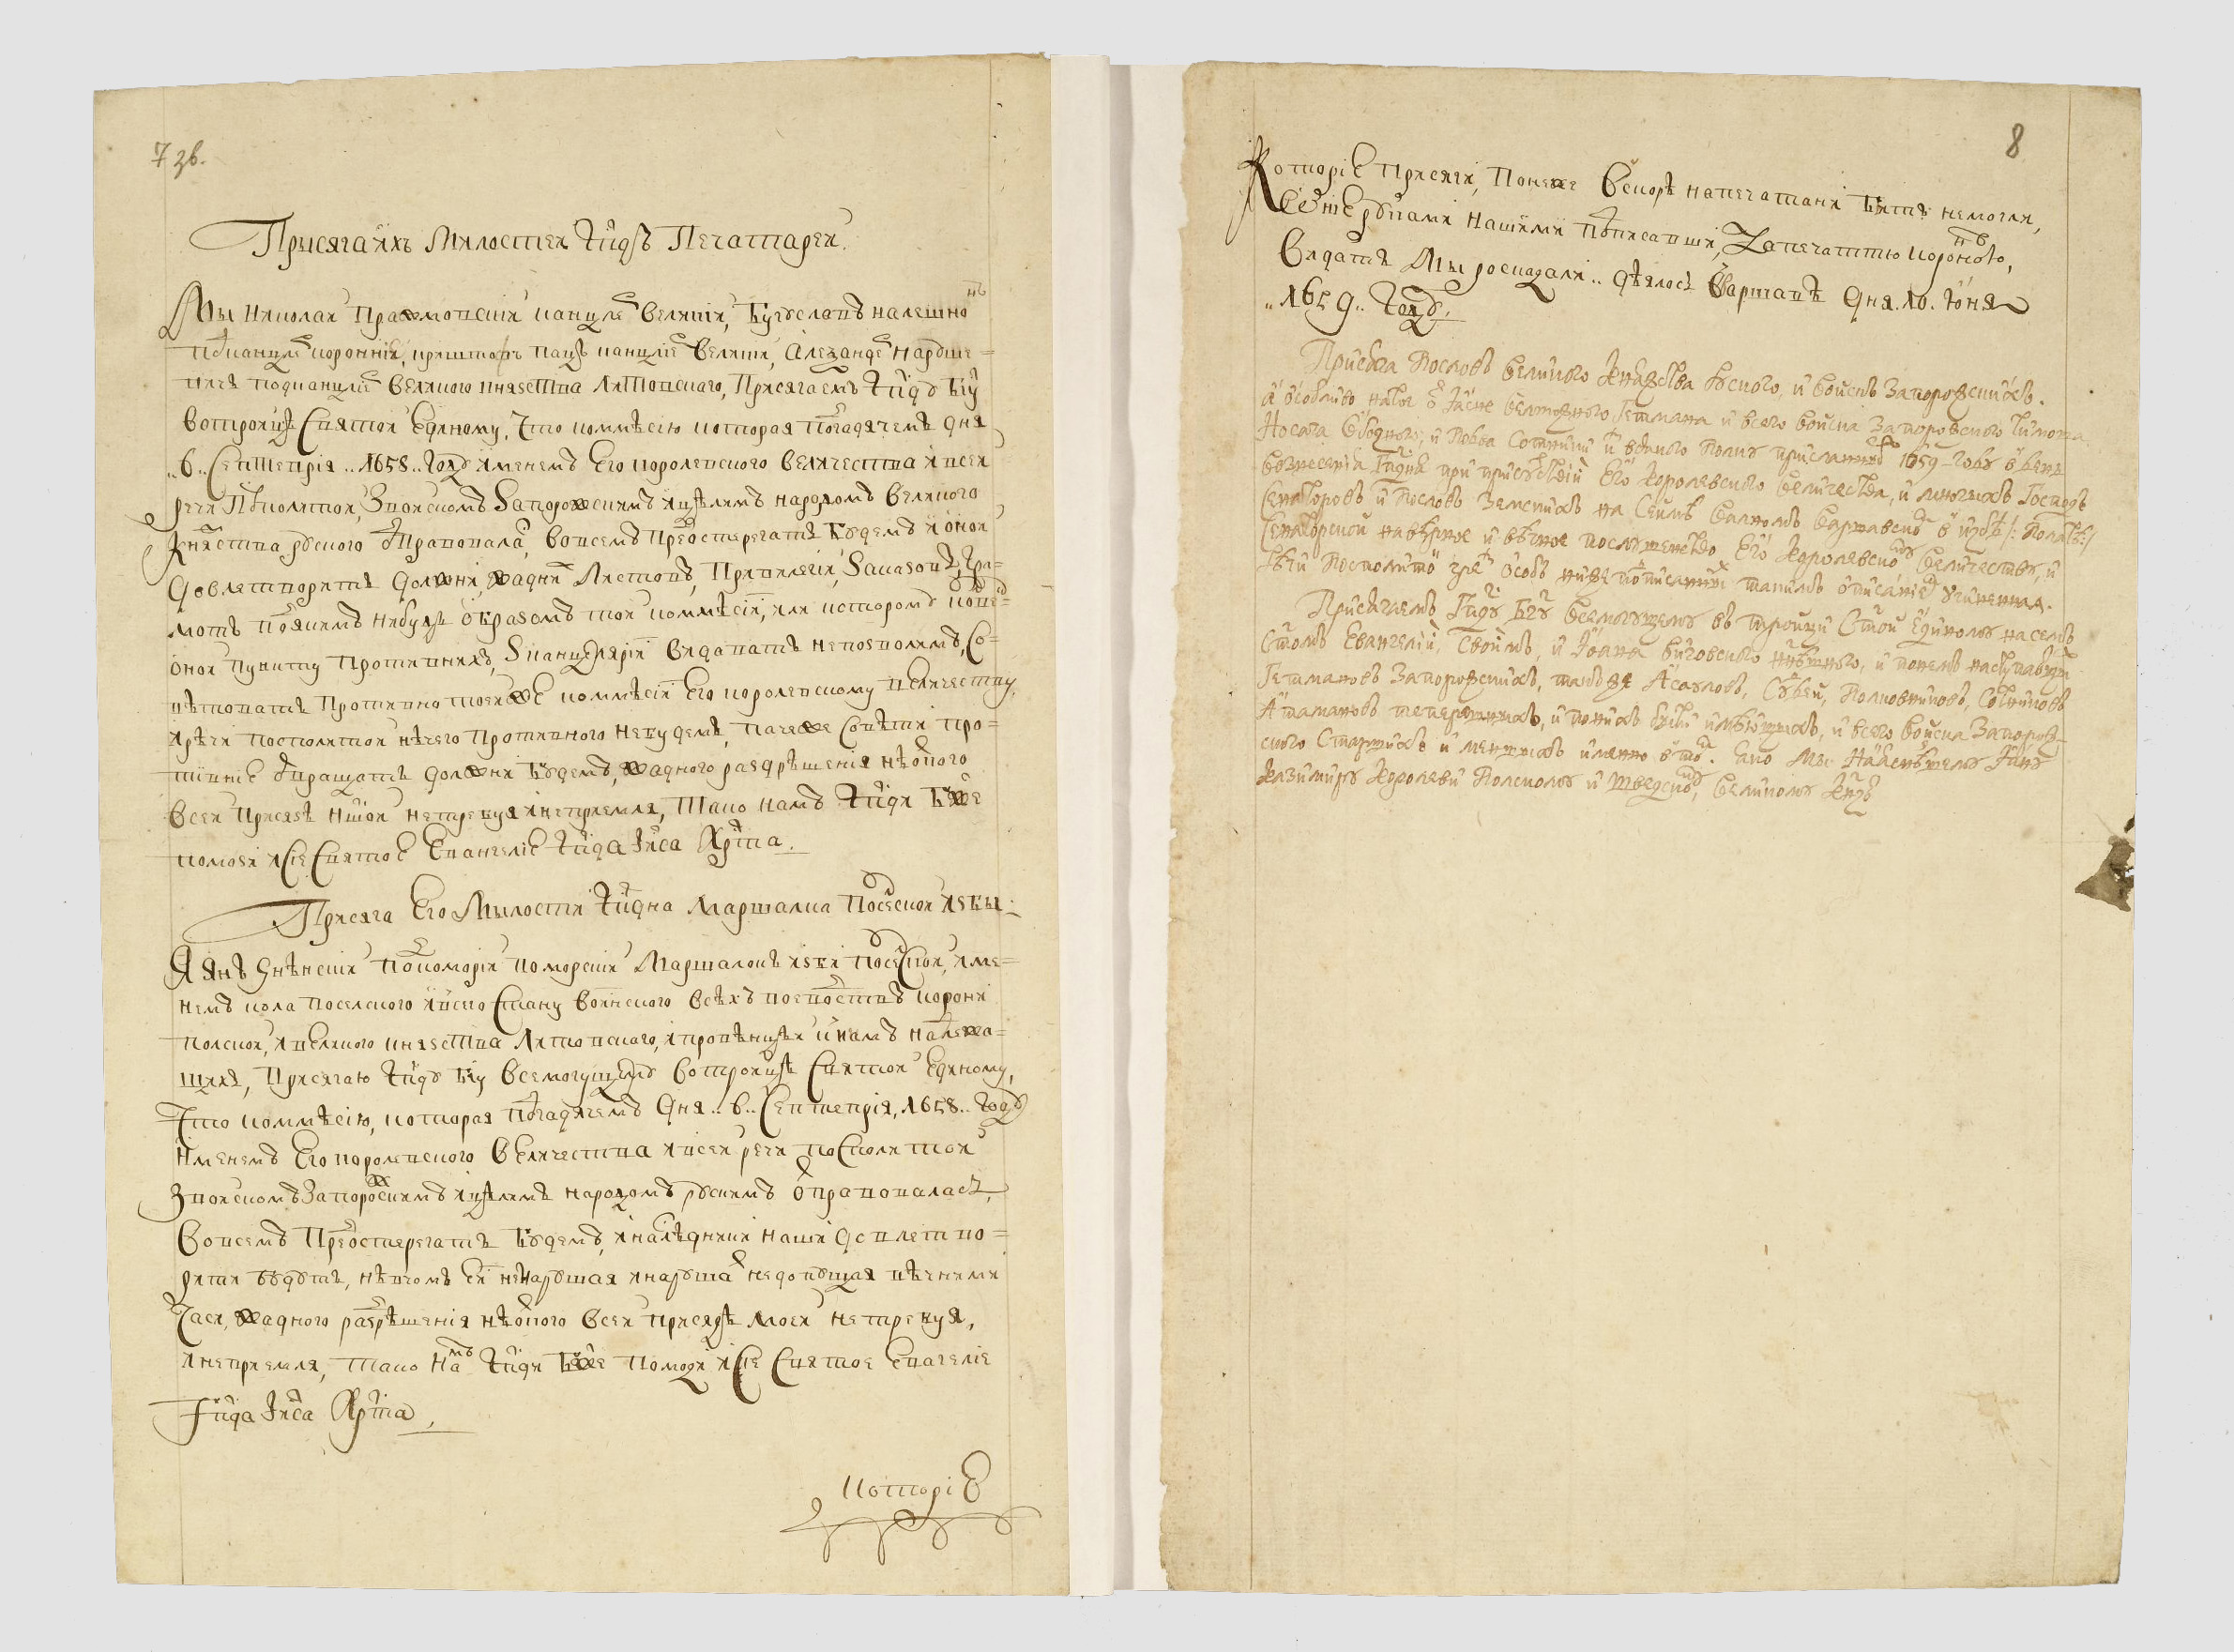 7 зв.
Присяга ихъ Милостей Гпдъ Печатарей.
Мы Николай Пражмовский канцлер великий, Бугуславъ налешно
пдканцлер коронний, криштофъ пацъ канцлер великий, Александер Наруше=
вичъ подканцлер великого князства Литовского, Присягаемъ Гпду Бгу
вотройцѣ Святой Единому, Что коммѣсию которая подгадячемъ дня
..6.. Септеврія ..1658.. году именемъ Его королевского величества и всей
речи Посполитой, Звойскомъ Запорожскимъ ицѣлимъ народомъ великого
Княства руского отправовалас, вовсемъ Преостерегатъ будемъ и оной
довлетворитъ должни, жадних Листовъ, Привилегій, Sаказовъ, Гра=
мотъ
оной пункту противнихъ, Sканцелярій видаватъ непозволимъ, Со=
вѣтоватъ Противно тоейже коммѣсій Его королевскому величеству
ирѣчи посполитой нѣчего Противного небудемъ, пачеже Совѣти про=
тивние отвращатъ должни будемъ, жадного раздрѣшенія нѣоткого
всей Присязѣ ншой нетребуя инепремля, Тако намъ Гпди Бже
помози исіе Святое Евангеліе Гпда Ііса Хрта.
Присяга Его Милости Гпдна Маршалка Поселской изби.
Я Янъ Гнѣнский Подкоморій поморский Маршалокъ изби Поселской, име=
немъ кола поселского ивсего Стану воинского всѣхъ воеводствъ корони
полской, ивеликого князства Литовского, ипровѣнцѣй книмъ належа=
щихъ, Присягаю Гпду Бгу всемогущему вотройцѣ Святой Единому,
Что коммѣсію, которая подгадячемъ дня ..6.. Септеврія, 1658.. году
Именемъ Его королевского величества ивсей речи посполитой
Звойскомъ Запорожскимъ ицѣлимъ народомъ рускимъ отправовалась,
вовсемъ Преостерегатъ будемъ, инаслѣдники наши довлетво=
рити будутъ, нѣвчомъ ей ненарушая инарушат недопущая вѣчними
Часи, жадного разрѣшенія нѣоткого всей присязѣ моей нетребуя,
инепремля, тако намъ Гпди Бже помози исіе Святое Евагеліе
Гпда Ііса Хрта,
которіе
8
Которіе присяги, Понеже вскорѣ напечатани бытъ немогли,
Сітіе руками нашіми подписавши, Zапечаттю коронною,
видатъ мы росказали.. дѣялось вваршавѣ дня .10. Юня
..1659.. году.
Присяга Пословъ великого Княжства Руского, и войскъ Запорожскихъ.
а особливо на тое от Ясне велможного Гетмана и всего войска Запорожского Тимоша
Носача обозного, и Повва Сотники з кождого полку присланних 1659-году
вознесенія Гсдня при присутствіи Его Королевского величества, и многихъ Господъ
Сенаторовъ и Пословъ Земскихъ на Сеймѣ валномъ варшавском в избѣ /: Полатѣ:/
Сенаторской на вѣрное и вѣчное послушенство Его Королевскому величеству, и
Рѣчи Посполитой чрез особъ ниже подписанних такимъ описаніем учиненна.
Присягаемъ Гсду Бгу всемогущему въ тройци Стой Единому на семъ
Стомъ Евангеліи, своимъ, и Іоана Виговского ннѣшного, и понемъ наступающих
Гетмановъ Запорожскихъ, такъже Асауловъ, Судей, Полковниковъ, Сотниковъ
Атамановъ теперешнихъ, и понихъ быти имѣющихъ, и всего войска Запорож=
ского Старшихъ и меншихъ имянно в том. Яко Мы Наяснѣйшему Яну
Казимиру Королеви Полскому и Шведскому, великому Кнзю